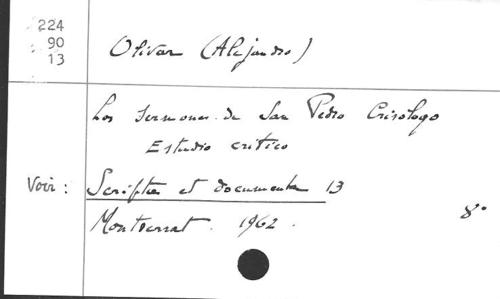 224
90
13
Olivar (Alejandro)
Los sermones de San Pedro Crisologo
Estudio critico
Voir : Scripta et documenta 13
Montserrat. 1962. 8°